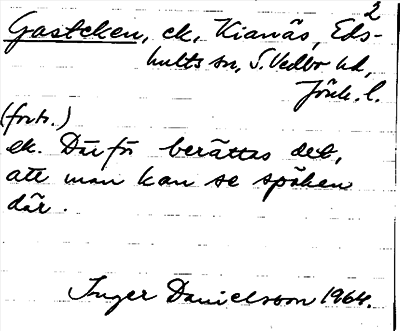 2
Gasteken, ek, Kianäs, Eds-
hults sn, S. Vedbo hd,
Jönk. l.
(forts.)
ek. Därför berättas det,
att man kan se spöken
där.
Inger Danielsson 1964.